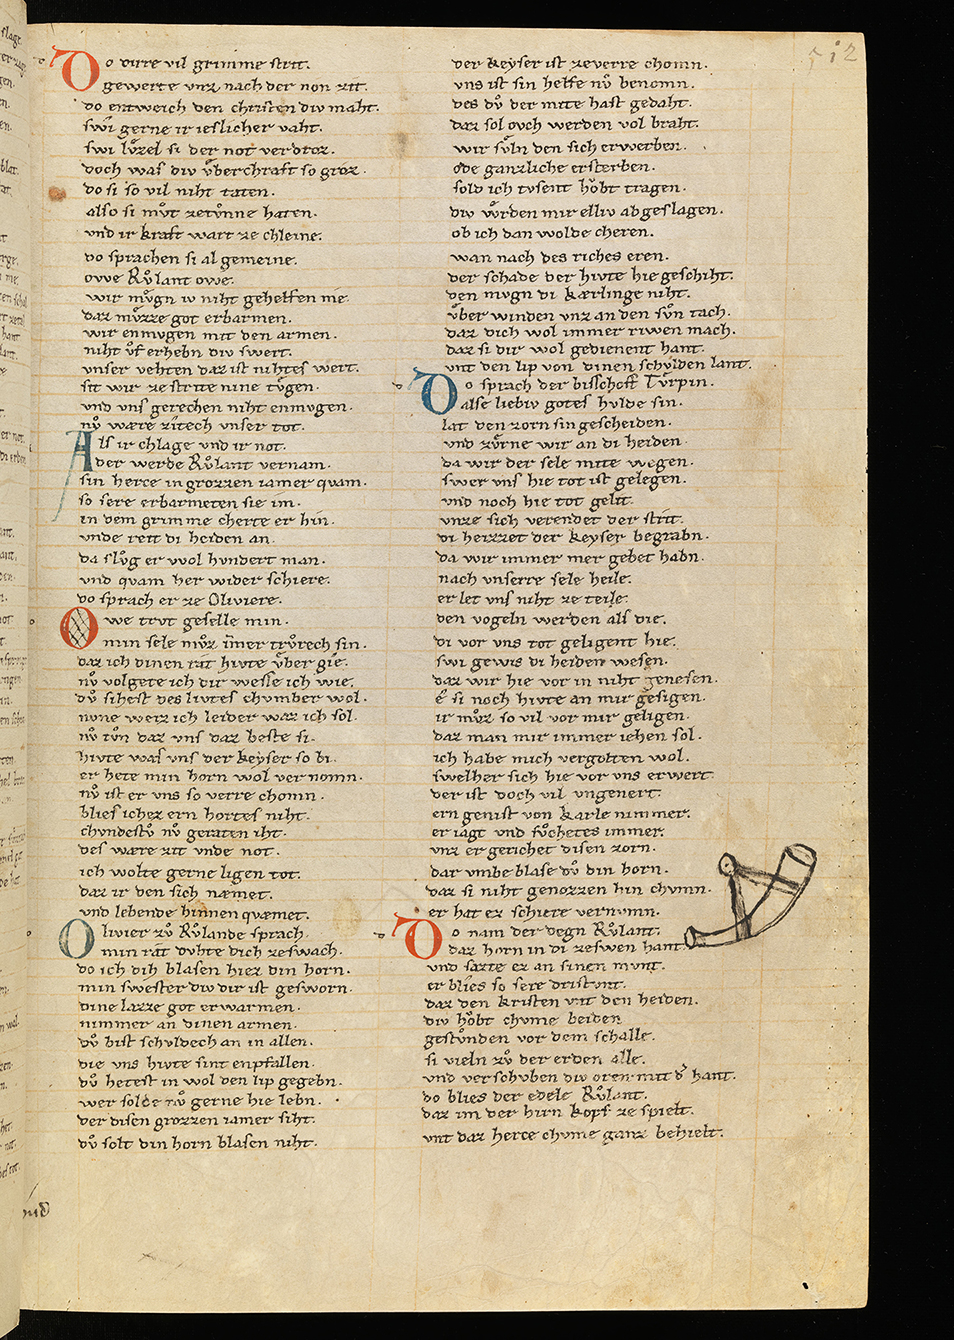 512
Do dirre vil grimme strit.
gewerte vnz nach der non zit.
do entweich den christen div maht.
swi gerne ir ieslicher vaht.
swi lůzel si der not verdroz.
doch waſ div vͦberchraft so groz.
do si so vil niht taten.
also si mvͦt zetvͦnne haten.
vnd ir kraft wart ze chleine.
do sprachen si al gemeine.
owe Rvͦlant owe.
wir mvͦgn iv niht gehelfen me
daz mvͦzze got erbarmen.
wir enmvgen mit den armen.
niht vͦf erhebn div swert.
vnser vehten daz ist nihtes wert.
sit wir ze strite nine tvͦgen.
vnd vnſ gerechen niht enmvgen.
nvͦ wære zitech vnser tot.
Alſ ir chlage vnd ir not.
der werde Rvͦlant vernam.
sin herce in grozzen iamer quam.
so sere erbarmeten sie im.
in dem grimme cherte er hin.
vnde reit di heiden an.
da slvͦg er wol hvndert man.
vnd quam her wider schiere.
do sprach er ze Oliviere.
Owe trvt geselle min.
min sele mvͦz im̄er trvͦrech sin.
daz ich dinen rat hivte vͦber gie.
nvͦ volgete ich dir wesse ich wie.
dvͦ sihest des livtes chvmber wol.
nvne weiz ich leider waz ich sol.
nvͦ tvͦn daz vnſ daz beste si.
hivte waſ vnſ der keyser so bi.
er hete min horn wol vernomn.
nvͦ ist er vns so verre chomn.
blieſ ichez ern hortes niht.
chvndestvͦ nvͦ geraten iht.
deſ wære zit vnde not.
ich wolte gerne ligen tot.
daz ir den sich næmet.
vnd lebende hinnen quæmet.
Olivier zvͦ Rvͦlande sprach.
min rat dvhte dich zeswach.
do ich dih blasen hiez din horn.
min swester div dir ist gesworn.
dine lazze got erwarmen.
nimmer an dinen armen.
dvͦ bist schvldech an in allen.
die vns hivte sint enpfallen.
dvͦ hetest in wol den lip gegebn.
wer solde nvͦ gerne hie lebn.
der disen grozzen iamer siht.
dvͦ solt din horn blasen niht.
der keyser ist zeverre chomn.
vns ist sin helfe nvͦ benomn.
des dvͦ der mite hast gedaht.
daz sol ovch werden vol braht.
wir svͦln den sich erwerben.
ode ganzliche ersterben.
sold ich tvsent hoͮbt tragen.
div wͦrden mir elliv abgeslagen.
ob ich dan wolde cheren.
wan nach des riches eren.
der schade der hivte hie geschiht.
den mvgn di kærlinge niht.
vͦber winden vnz an den svͦn tach.
daz dich wol immer riwen mach.
daz si dir wol gedienent hant.
vnt den lip von dinen schvlden lant.
Do sprach der bisschoff Tvͦrpin.
alse liebiv gotes hvlde sin.
lat den zorn sin gescheiden.
vnd zvͦrne wir an di heiden.
da wir der sele mite wegen.
swer vns hie tot ist gelegen.
vnd noch hie tot gelit.
vnze sich verendet der strit.
di heizzet der keyser begrabn.
da wir immer mer gebet habn.
nach vnserre sele heile.
er let vnſ niht ze teile.
den vogeln werden alſ die.
di vor vns tot geligent hie.
swi gewis di heiden wesen.
daz wir hie vor in niht genesen.
e si noch hivte an mir gesigen.
ir mvͦz so vil vor mir geligen.
daz man mir immer iehen sol.
ich habe mich vergolten wol.
swelher sich hie vor vns erwert.
der ist doch vil vngenert.
ern genist von Karle nimmer.
er iagt vnd svͦchetes immer.
vnz er gerichet disen zorn.
dar vmbe blase dvͦ din horn.
daz si niht genozzen hin chvmn.
er hat ez schiere vernvmn.
Do nam der degn Rvͦlant.
daz horn in di zeswen hant.
vnd sazte ez an sinen mvnt.
er blies so sere dristvnt.
daz den kristen vnt den heiden.
div hoͮbt chvme beiden
gestvͦnden vor dem schalle.
si vieln zvͦ der erden alle.
vnd verschvben div oren mit d̕ hant.
do blies der edele Rvͦlant.
daz im der hirn kopf ze spielt.
vnt daz herce chvme ganz behielt.